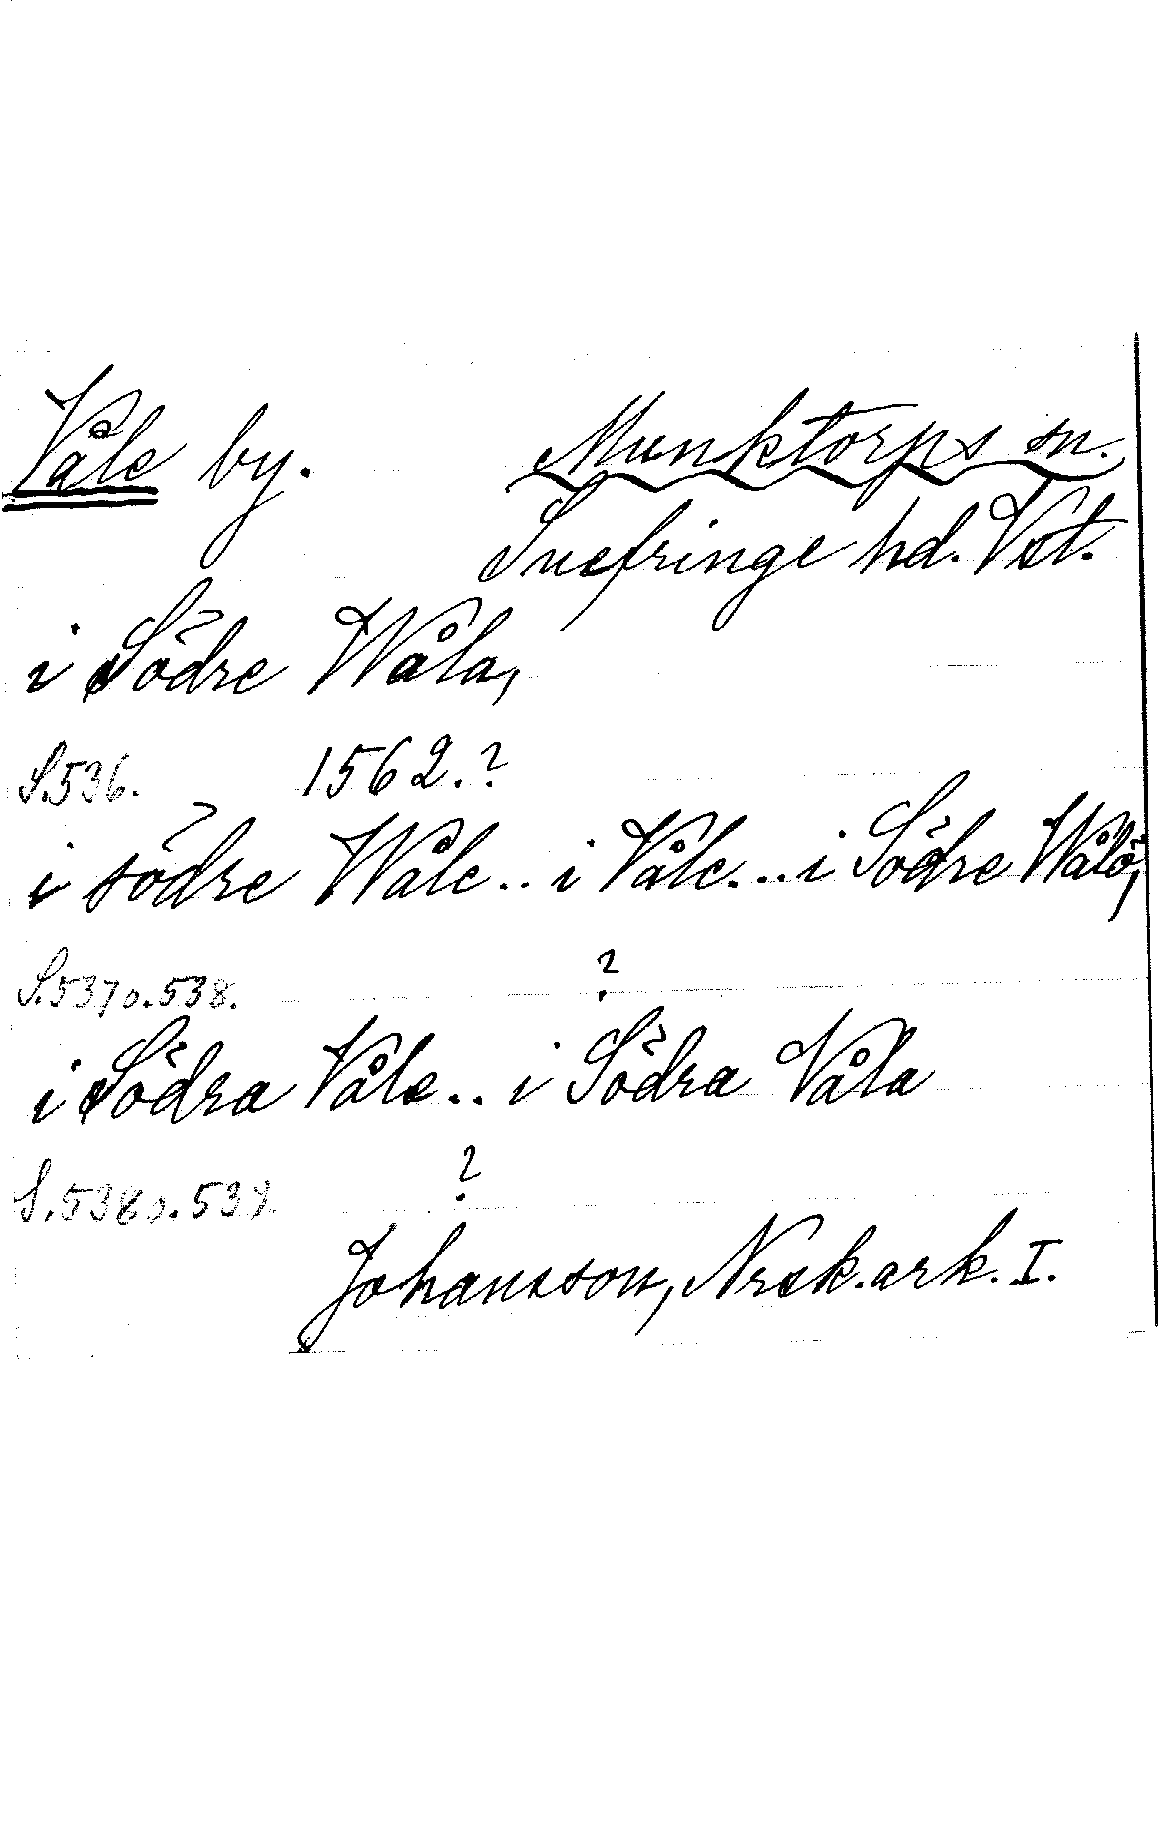 Våle by. Munktorps sn.
Snefringe hd. Vst.
i Södre Wåla,
S.536. 1562.?
i södre Wåle.. i Våle... i Södre Wålö,
S.537 o. 538. ?
i Södra Våle.. i Södra Våla
S.538 o. 539. ?
Johansson, Nrsk. ark. I.